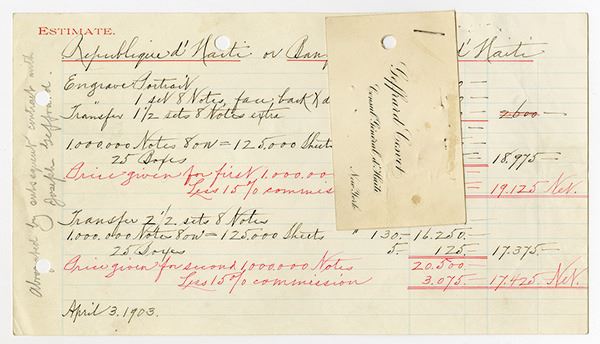 ESTIMATE.
Republique d'Haiti or Ban d'Haiti
Engrave Portrait
" 1 set 8 Notes, face, back &
Transfer 1 1/2 sets 8 Notes extra
2600 —
1.000.000 Notes 8 on = 125.000 Sheets
25 Boxes 18.975 —
Price given for first 1.000.00
Less 15% commiss 19.125 Net.
Transfer 2 1/2 sets 8 Notes
1.000.000 Notes 8 on = 125.000 Sheets " 130.— 16.250.—
25 Boxes 5. 125.— 17.375.—
Price given for second 1,000,000 Notes 20.500.—
Less 15% commission 3.075.— 17.425.— Net.
April 3.1903.
Geffrard Cesvet
Consul Général d'Haïti
New York
by subsequent contract with
Joseph Geffrard.